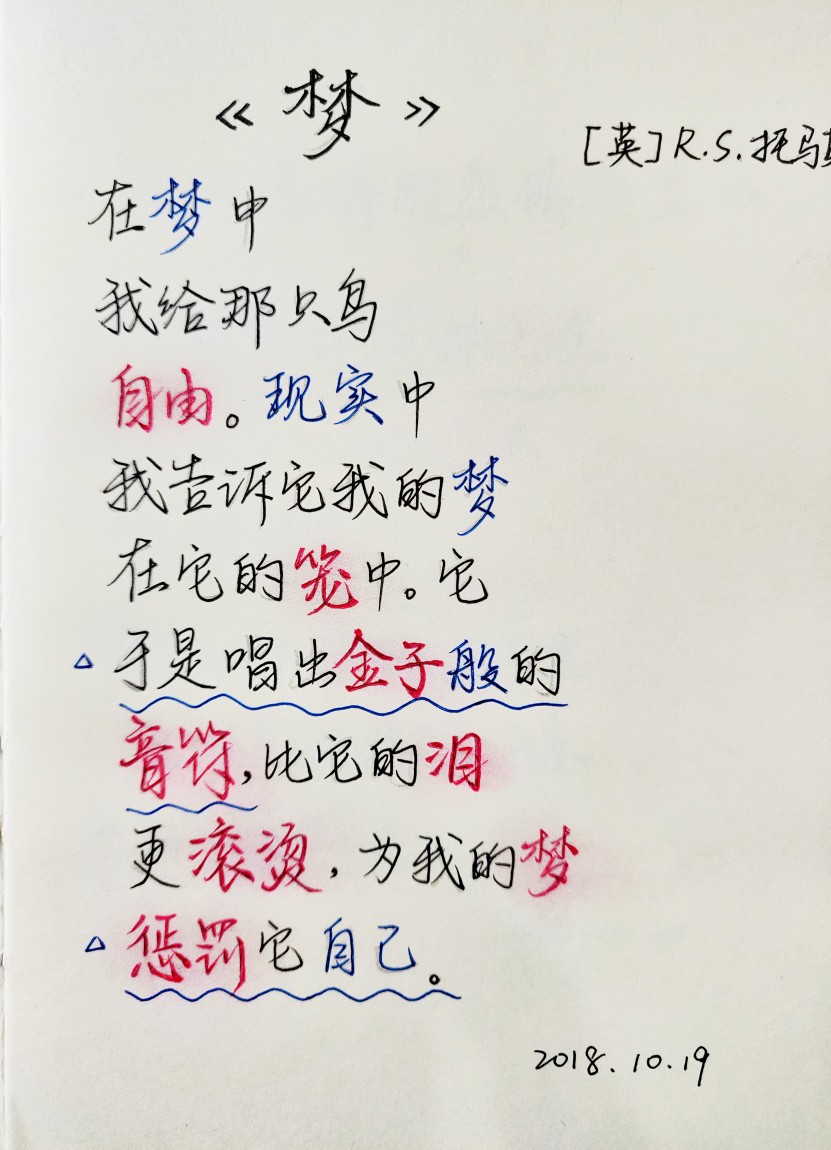 《梦》
[英]R.S.托马斯
在梦中
我给那只鸟
自由。现实中
我告诉它我的梦
在它的笼中。它
△于是唱出金子般的
音符,比它的泪
更滚烫,为我的梦
△惩罚它自己。
2018.10.19